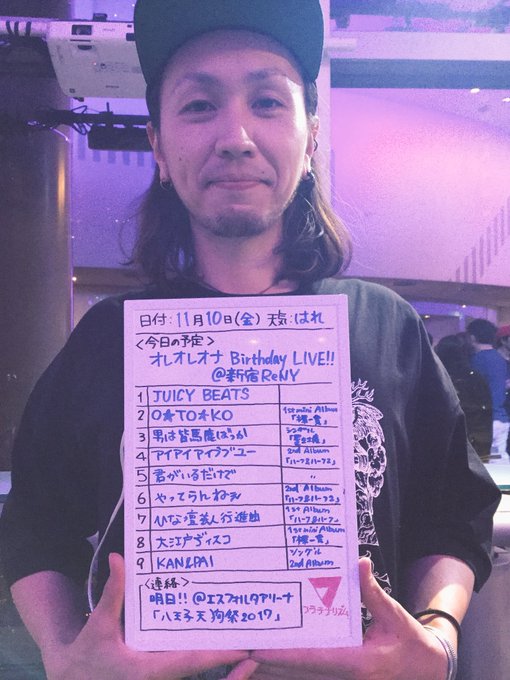 日付:11月10日(金) 天気:はれ
<今日の予定>
オレオレオナ Birthday LIVE!!
@新宿ReNY
1 JUICY BEATS
2 O★TO★KO 1st mini Album「裸一貫」
3 男は皆馬鹿ばっか シングル
4 アイアイアイラブユー 2nd Album「ハーフ&ハーフ2」
5 君がいるだけで 〃
6 やってらんねぇ 2nd Album「ハーフ&ハーフ2」
7 ひな壇芸人行進曲 1st Album「ハーフ&ハーフ」
8 大江戸ディスコ 1st mini Album「裸一貫」
9 KAN&PAI シングル 2nd Album
<連絡>
明日!! @エスフォルタアリーナ
「八王子天狗祭2017」
プラチナリズム